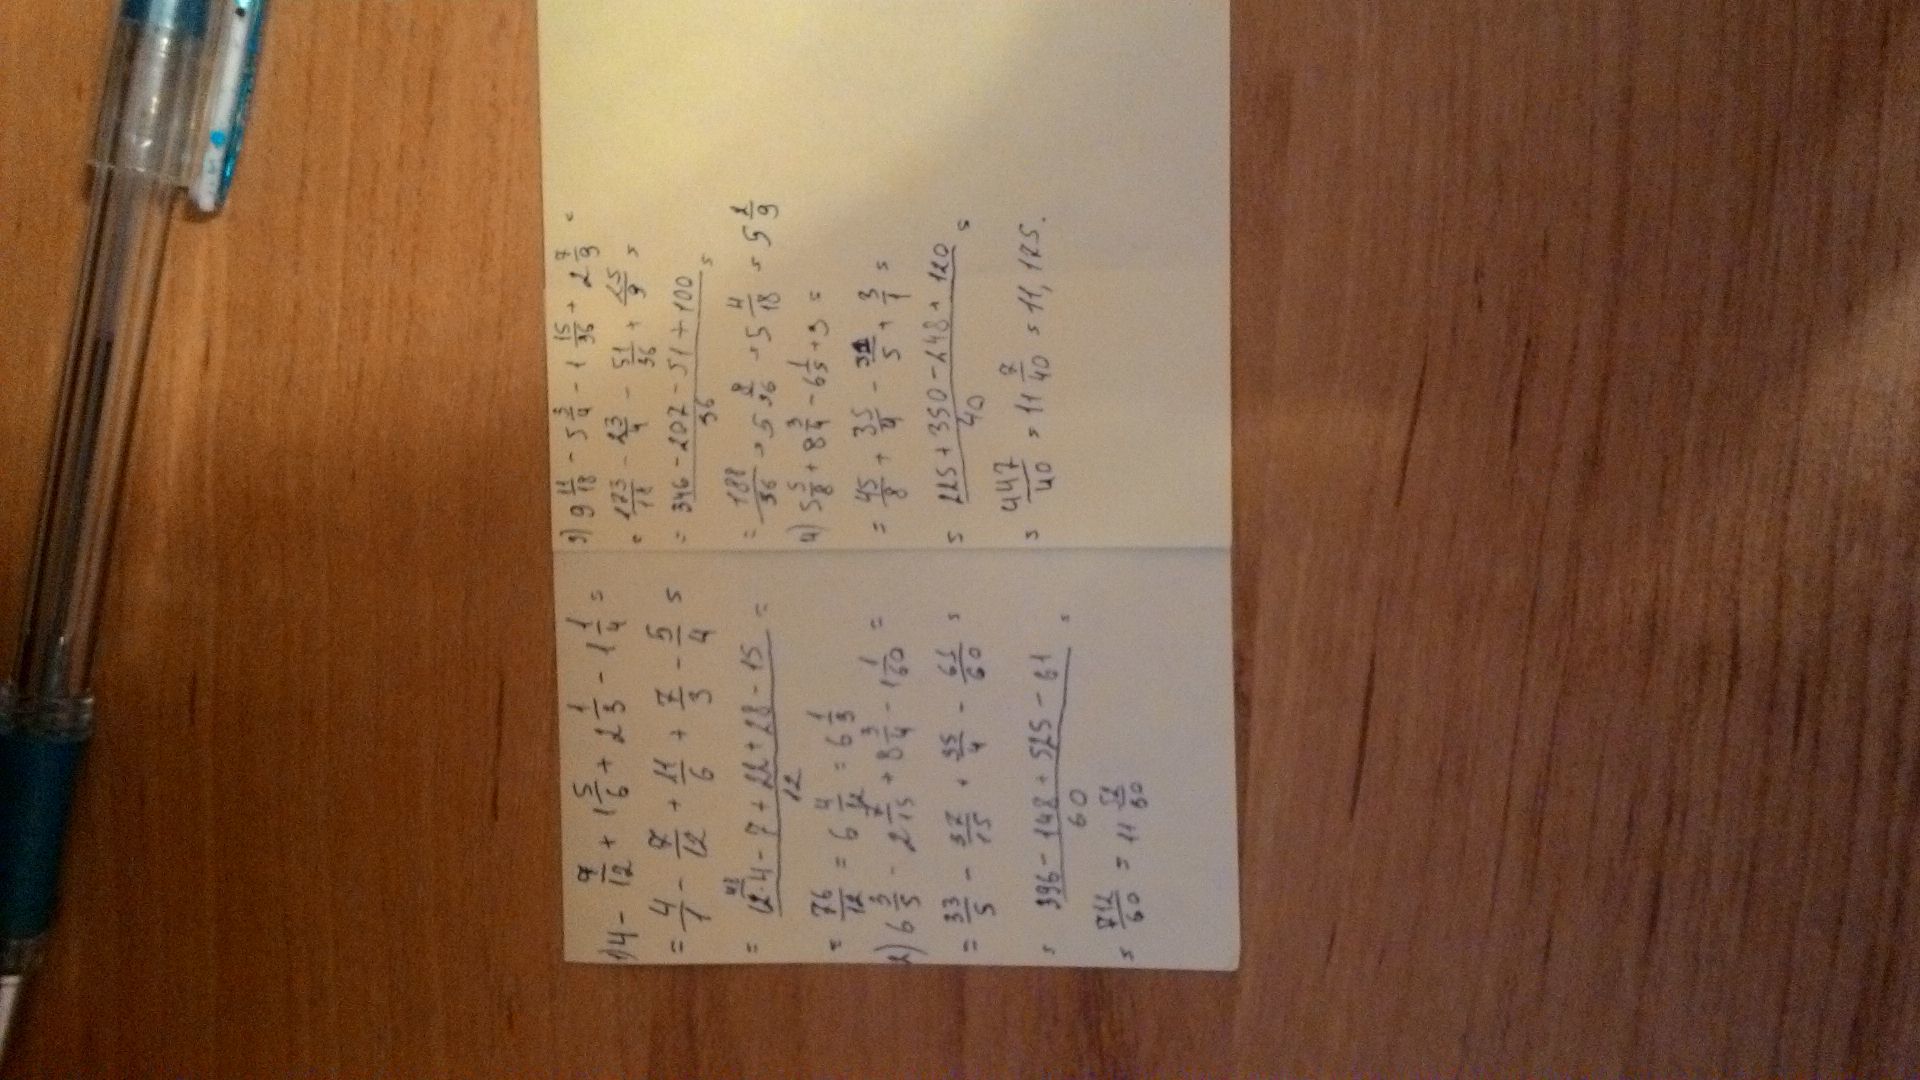 1) 4 - 7/12 + 1 5/6 + 2 1/3 - 1 1/4 =
= 4/1 - 7/12 + 11/6 + 7/3 - 5/4 =
= 12·4 - 7 + 22 + 28 - 15 / 12 =
= 76/12 = 6 4/12 = 6 1/3
2) 6 3/5 - 2 7/15 + 8 3/4 - 1 1/60 =
= 33/5 - 37/15 + 35/4 - 61/60 =
= 396 - 148 + 525 - 61 / 60 =
= 712/60 = 11
3) 9 11/18 - 5 3/4 - 1 15/36 + 2 7/9 =
= 173/18 - 23/4 - 51/36 + 25/9 =
= 346 - 207 - 51 + 100 / 36 =
= 188/36 = 5 8/36 = 5 4/18 = 5 2/9
4) 5 5/8 + 8 3/4 - 6 1/5 + 3 =
= 45/8 + 35/4 - 31/5 + 3/1 =
= 225 + 350 - 248 + 120 / 40 =
= 447/40 = 11 7/40 = 11,125.